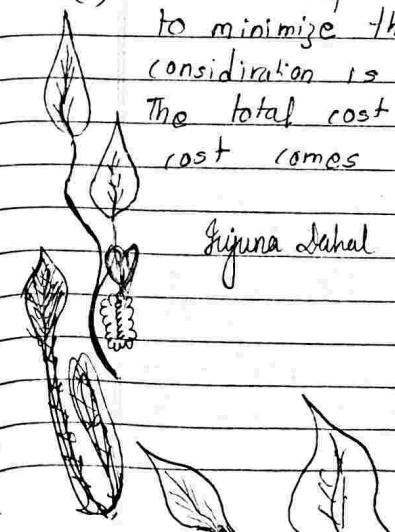 to minimize th
considiration is
The total cost
cost comes
Dahal